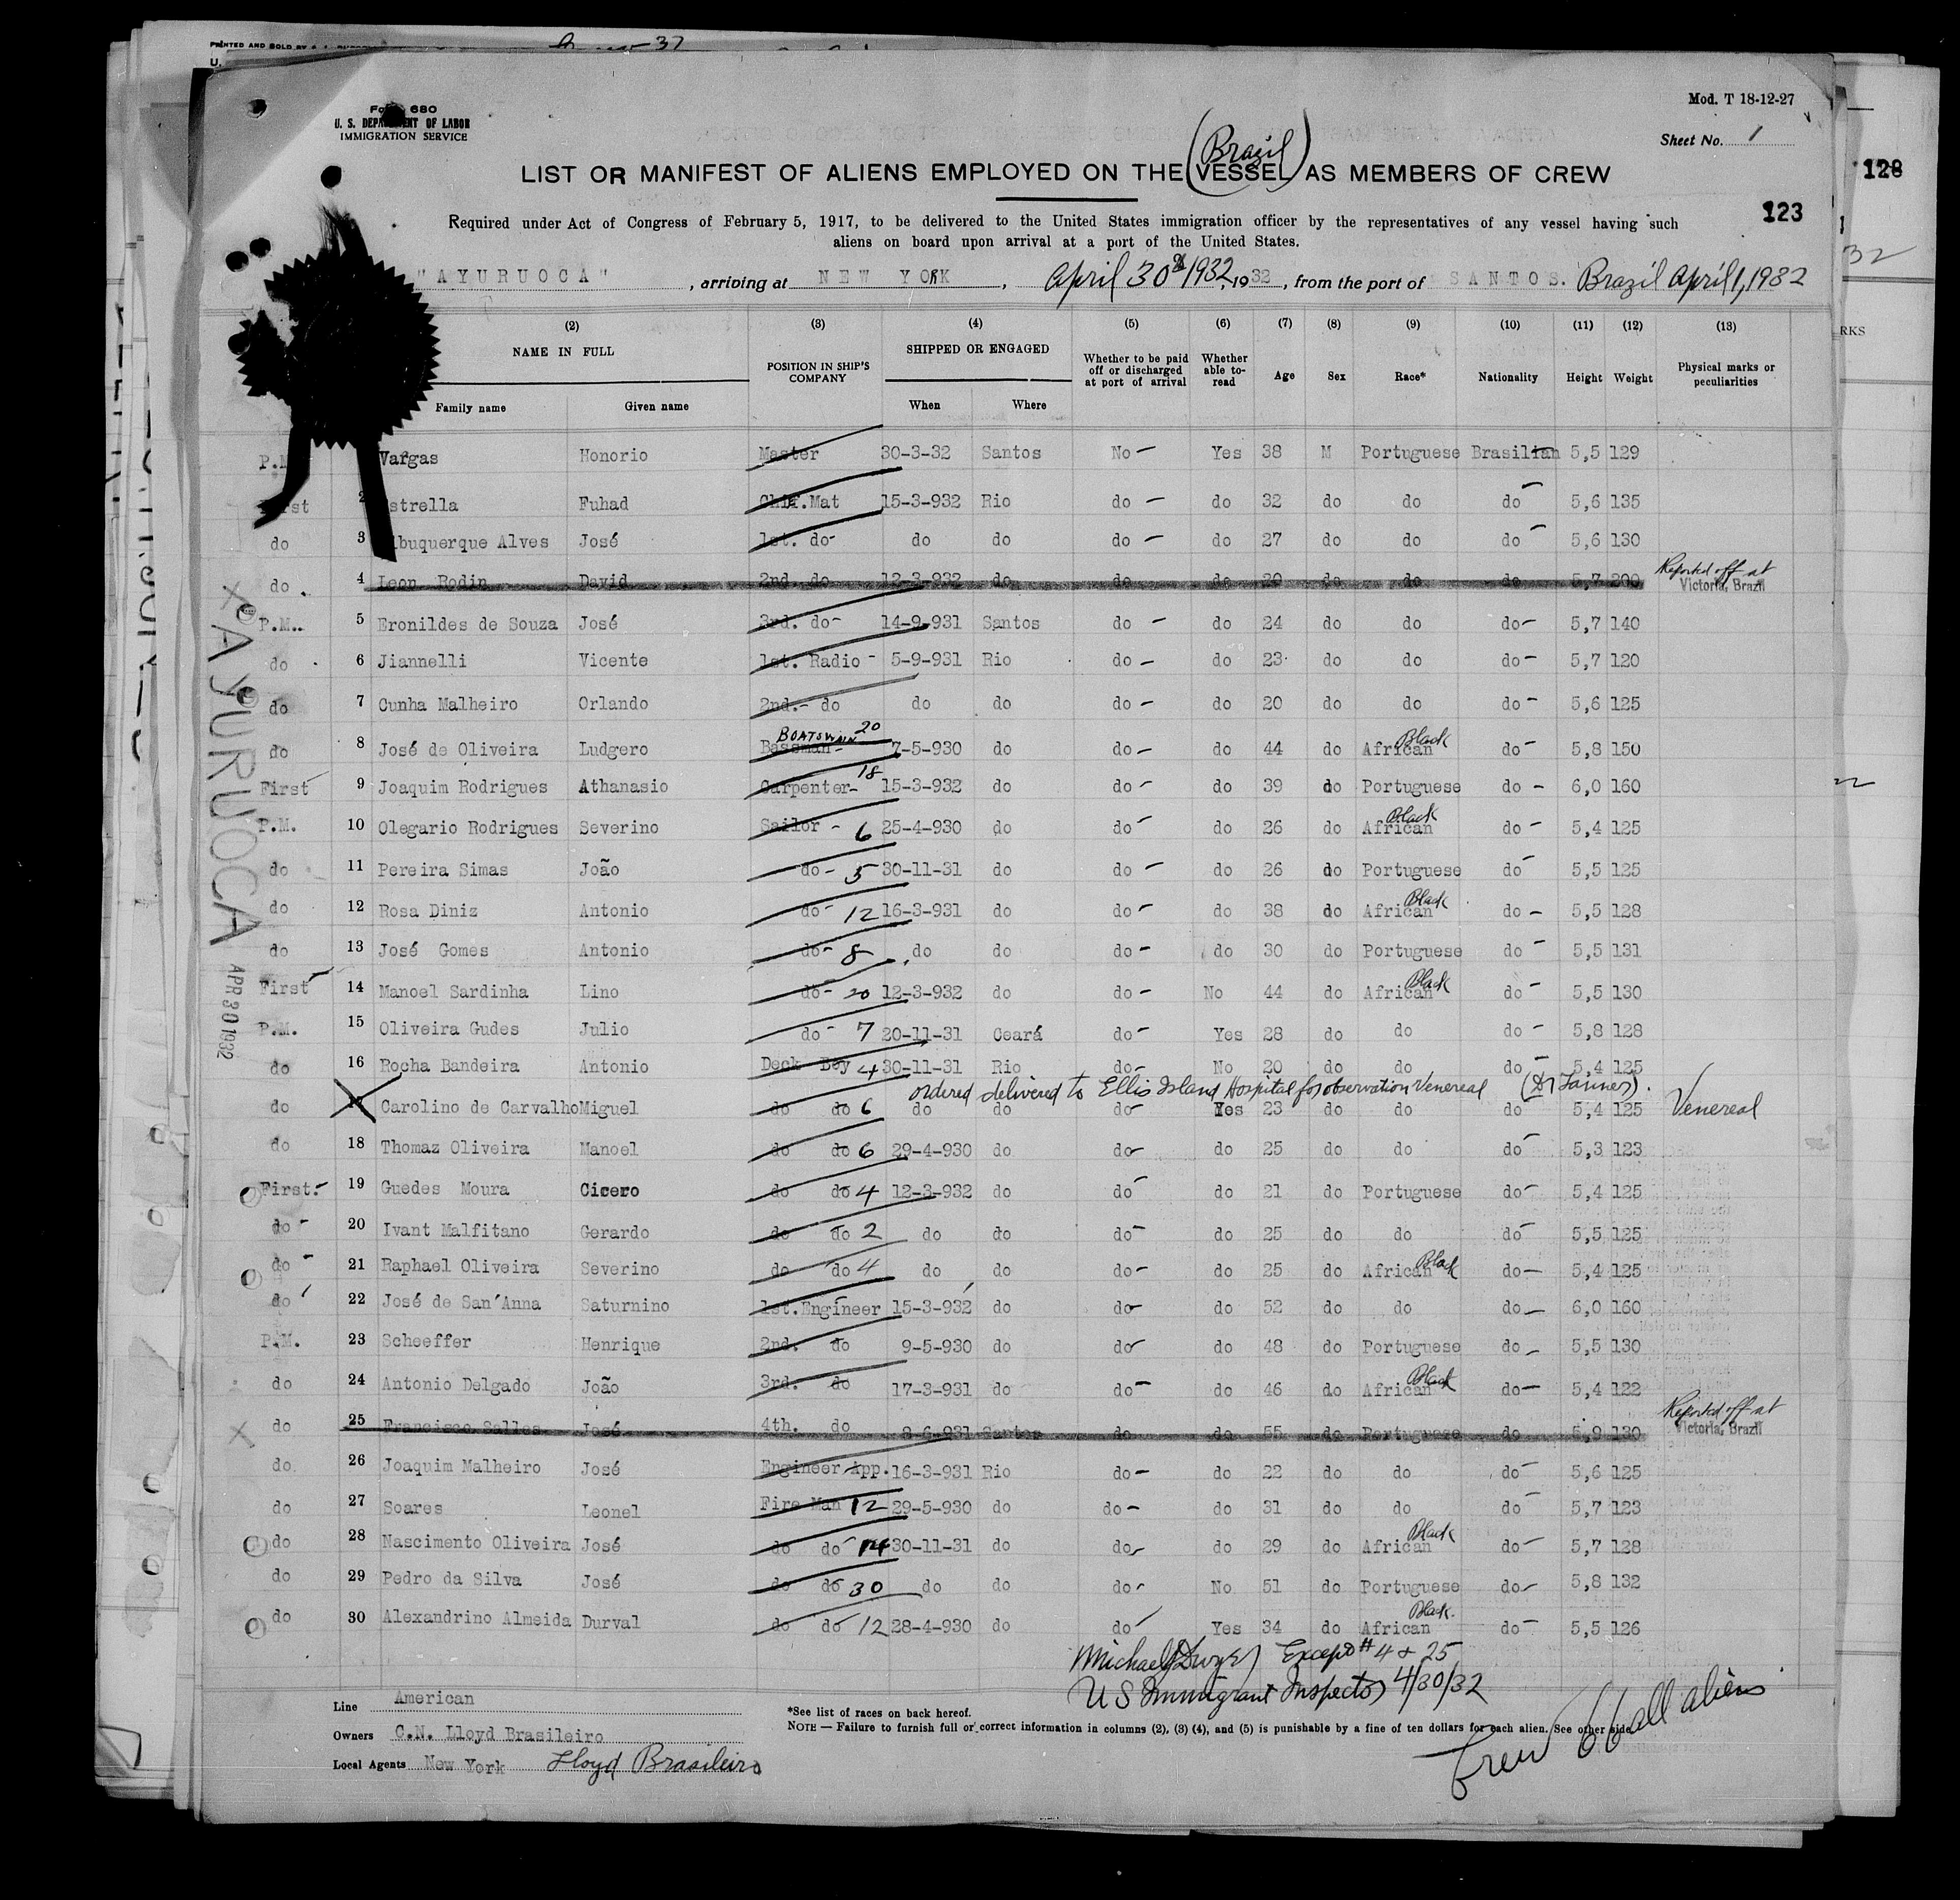 PRINTED AND SOLD BY
U.
Form 680
U. S. DEPARTMENT OF LABOR
IMMIGRATION SERVICE
Mod. T 18-12-27
Sheet No. 1
(Brazil)
LIST OR MANIFEST OF ALIENS EMPLOYED ON THE VESSEL AS MEMBERS OF CREW
128
123
Required under Act of Congress of February 5, 1917, to be delivered to the United States immigration officer by the representatives of any vessel having such
aliens on board upon arrival at a port of the United States.
"AYURUOCA", arriving at NEW YORK, April 30th 1932, 1932, from the port of SANTOS. Brazil April 1, 1932
(2) (3) (4) (5) (6) (7) (8) (9) (10) (11) (12) (13)
NAME IN FULL POSITION IN SHIP'S COMPANY SHIPPED OR ENGAGED Whether to be paid off or discharged at port of arrival Whether able to read Age Sex Race* Nationality Height Weight Physical marks or peculiarities
Family name Given name When Where
RKS
P.M. Vargas Honorio Master 30-3-32 Santos No Yes 38 M Portuguese Brasilian 5,5 129
First 2 Estrella Fuhad Chif.Mat 15-3-932 Rio do do 32 do do do 5,6 135
do 3 Albuquerque Alves José 1st. do do do do do 27 do do do 5,6 130
do 4 Leon Rodin David 2nd. do 12-3-932 do do do 29 do do do 5,7 200 Reported off at Victoria, Brazil
P.M. 5 Eronildes de Souza José 3rd. do 14-9-931 Santos do do 24 do do do 5,7 140
do 6 Jiannelli Vicente 1st. Radio 5-9-931 Rio do do 23 do do do 5,7 120
do 7 Cunha Malheiro Orlando 2nd. do do do do do 20 do do do 5,6 125
do 8 José de Oliveira Ludgero Bassman BOATSWAIN 20 7-5-930 do do do 44 do African Black do 5,8 150
First 9 Joaquim Rodrigues Athanasio Carpenter 18 15-3-932 do do do 39 do Portuguese do 6,0 160
P.M. 10 Olegario Rodrigues Severino Sailor 6 25-4-930 do do do 26 do African Black do 5,4 125
do 11 Pereira Simas João do 5 30-11-31 do do do 26 do Portuguese do 5,5 125
do 12 Rosa Diniz Antonio do 12 16-3-931 do do do 38 do African Black do 5,5 128
do 13 José Gomes Antonio do 8 do do do do 30 do Portuguese do 5,5 131
First 14 Manoel Sardinha Lino do 20 12-3-932 do do No 44 do African Black do 5,5 130
P.M. 15 Oliveira Gudes Julio do 7 20-11-31 Ceará do Yes 28 do do do 5,8 128
do 16 Rocha Bandeira Antonio Deck Boy 4 30-11-31 Rio do No 20 do do do 5,4 125
ordered delivered to Ellis Island Hospital for observation Venereal (Dr Tanner).
do 17 Carolino de Carvalho Miguel do do 6 do do do Yes 23 do do do 5,4 125 Venereal
do 18 Thomaz Oliveira Manoel do do 6 29-4-930 do do do 25 do do do 5,3 123
First. 19 Guedes Moura Cicero do do 4 12-3-932 do do do 21 do Portuguese do 5,4 125
do 20 Ivant Malfitano Gerardo do do 2 do do do do 25 do do do 5,5 125
do 21 Raphael Oliveira Severino do do 4 do do do do 25 do African Black do 5,4 125
do 22 José de San'Anna Saturnino 1st. Engineer 15-3-932 do do do 52 do do do 6,0 160
P.M. 23 Scheeffer Henrique 2nd. do 9-5-930 do do do 48 do Portuguese do 5,5 130
do 24 Antonio Delgado João 3rd. do 17-3-931 do do do 46 do African Black do 5,4 122
do 25 Francisco Salles José 4th. do 8-6-931 Santos do do 55 do Portuguese do 5,9 130 Reported off at Victoria, Brazil
do 26 Joaquim Malheiro José Engineer App. 16-3-931 Rio do do 22 do do do 5,6 125
do 27 Soares Leonel Fire Man 12 29-5-930 do do do 31 do do do 5,7 123
do 28 Nascimento Oliveira José do do 14 30-11-31 do do do 29 do African Black do 5,7 128
do 29 Pedro da Silva José do do 30 do do do No 51 do Portuguese do 5,8 132
do 30 Alexandrino Almeida Durval do do 12 28-4-930 do do Yes 34 do African Black. do 5,5 126
X AYURUOCA
APR 30 1932
Michael J Dwyer Except # 4 + 25
US Immigrant Inspector 4/30/32
Line American
*See list of races on back hereof.
Owners C.N. Lloyd Brasileiro
NOTE — Failure to furnish full or correct information in columns (2), (3) (4), and (5) is punishable by a fine of ten dollars for each alien. See other side
Crew 66 all aliens
Local Agents New York Lloyd Brasileiro